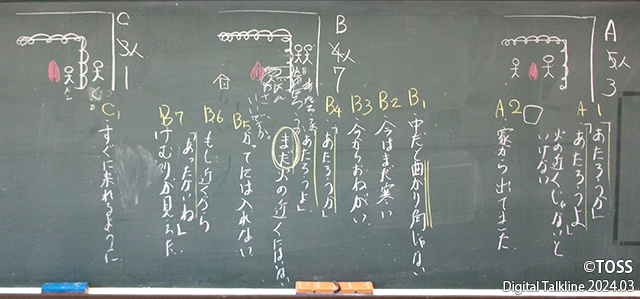 A
5人
3
A1
「あたろうか」
「あたろうよ」
火の近くじゃないと
いけない
A2
家から出てきた
B
4人
7
B1
中だと曲がり角じゃない
B2
今はまだ寒い
B3
今からおねがい
B4
「あたろうか」
「あたろうよ」
まだ火の近くにはいない
B5
かってには入れない
B6
もし近くなら
「あったかいね」
B7
けむりが見えた
C
3人
1
C1
すぐに来れるように
©TOSS
Digital Talkline 2024.03